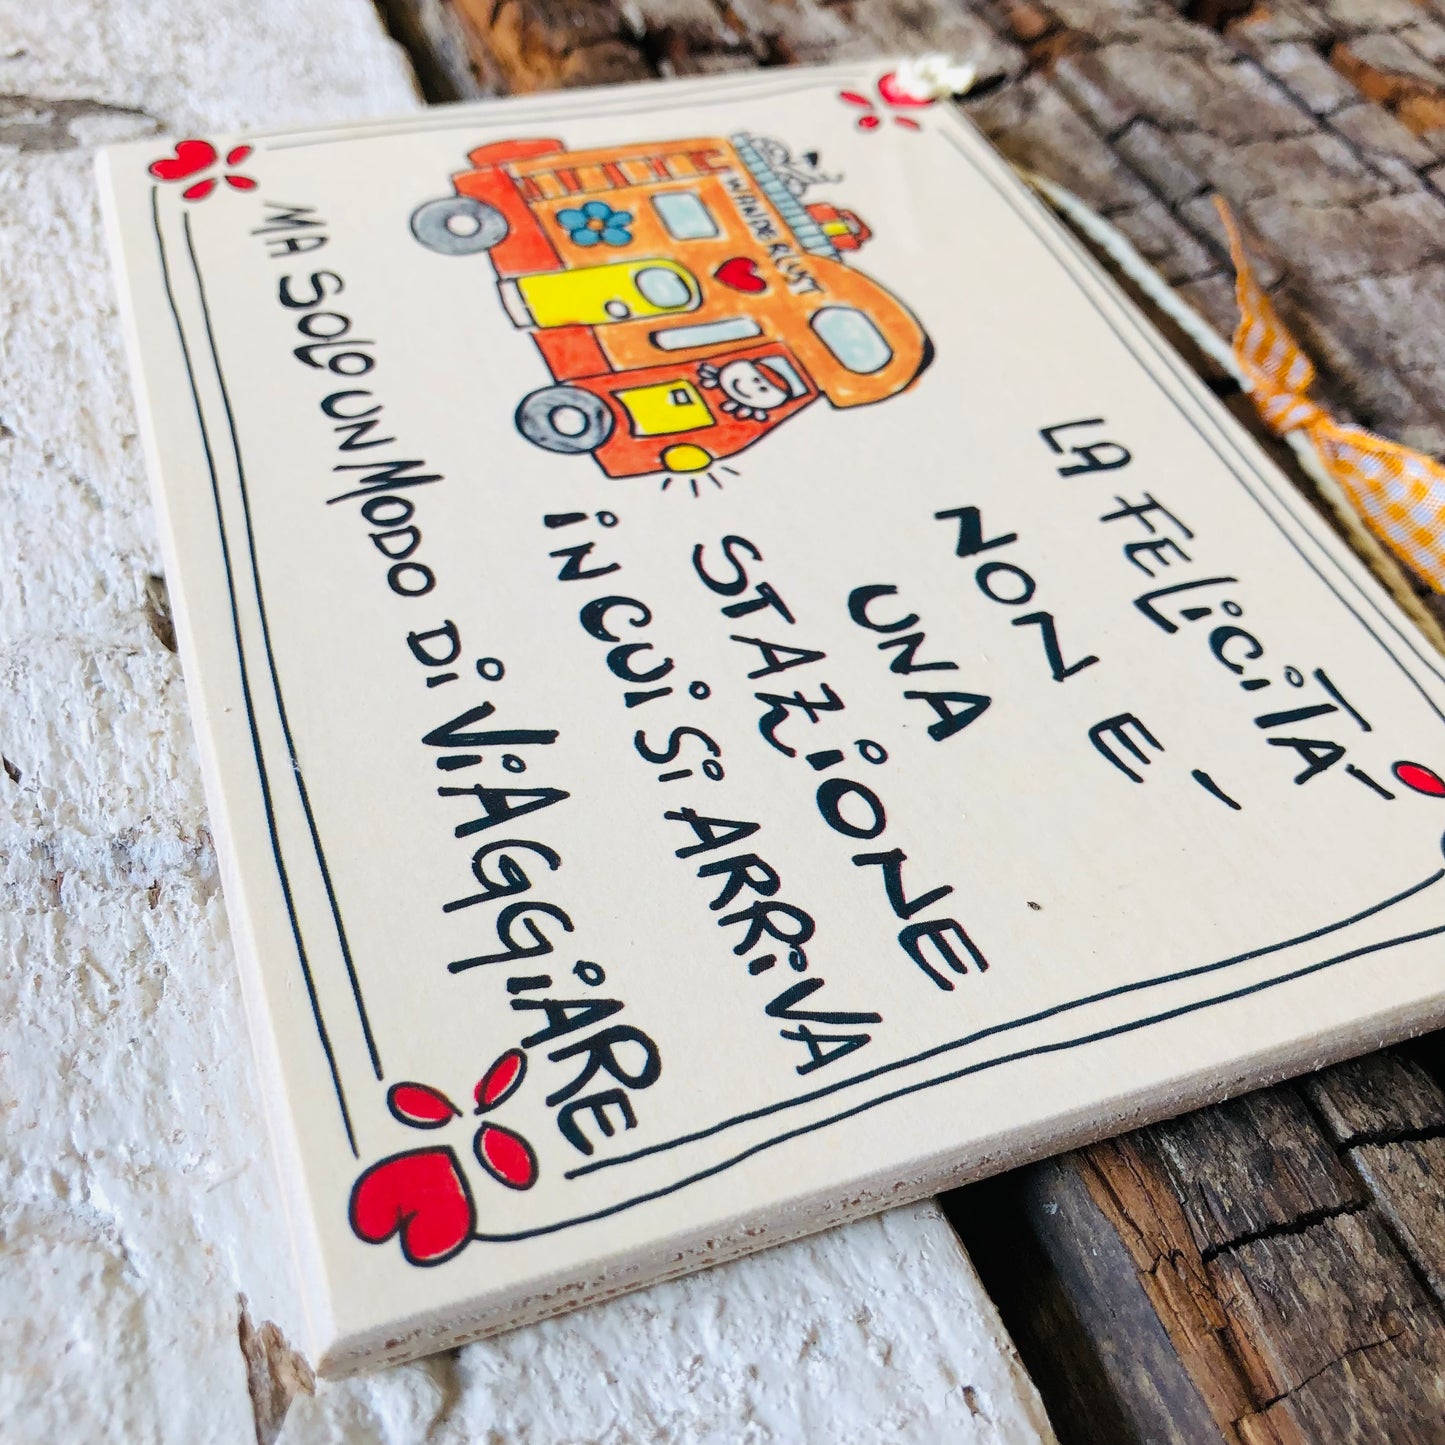 LA FELICITA'
NON E'
UNA
STAZIONE
IN CUI SI ARRIVA
MA SOLO UN MODO DI VIAGGIARE!
WANDERLUST